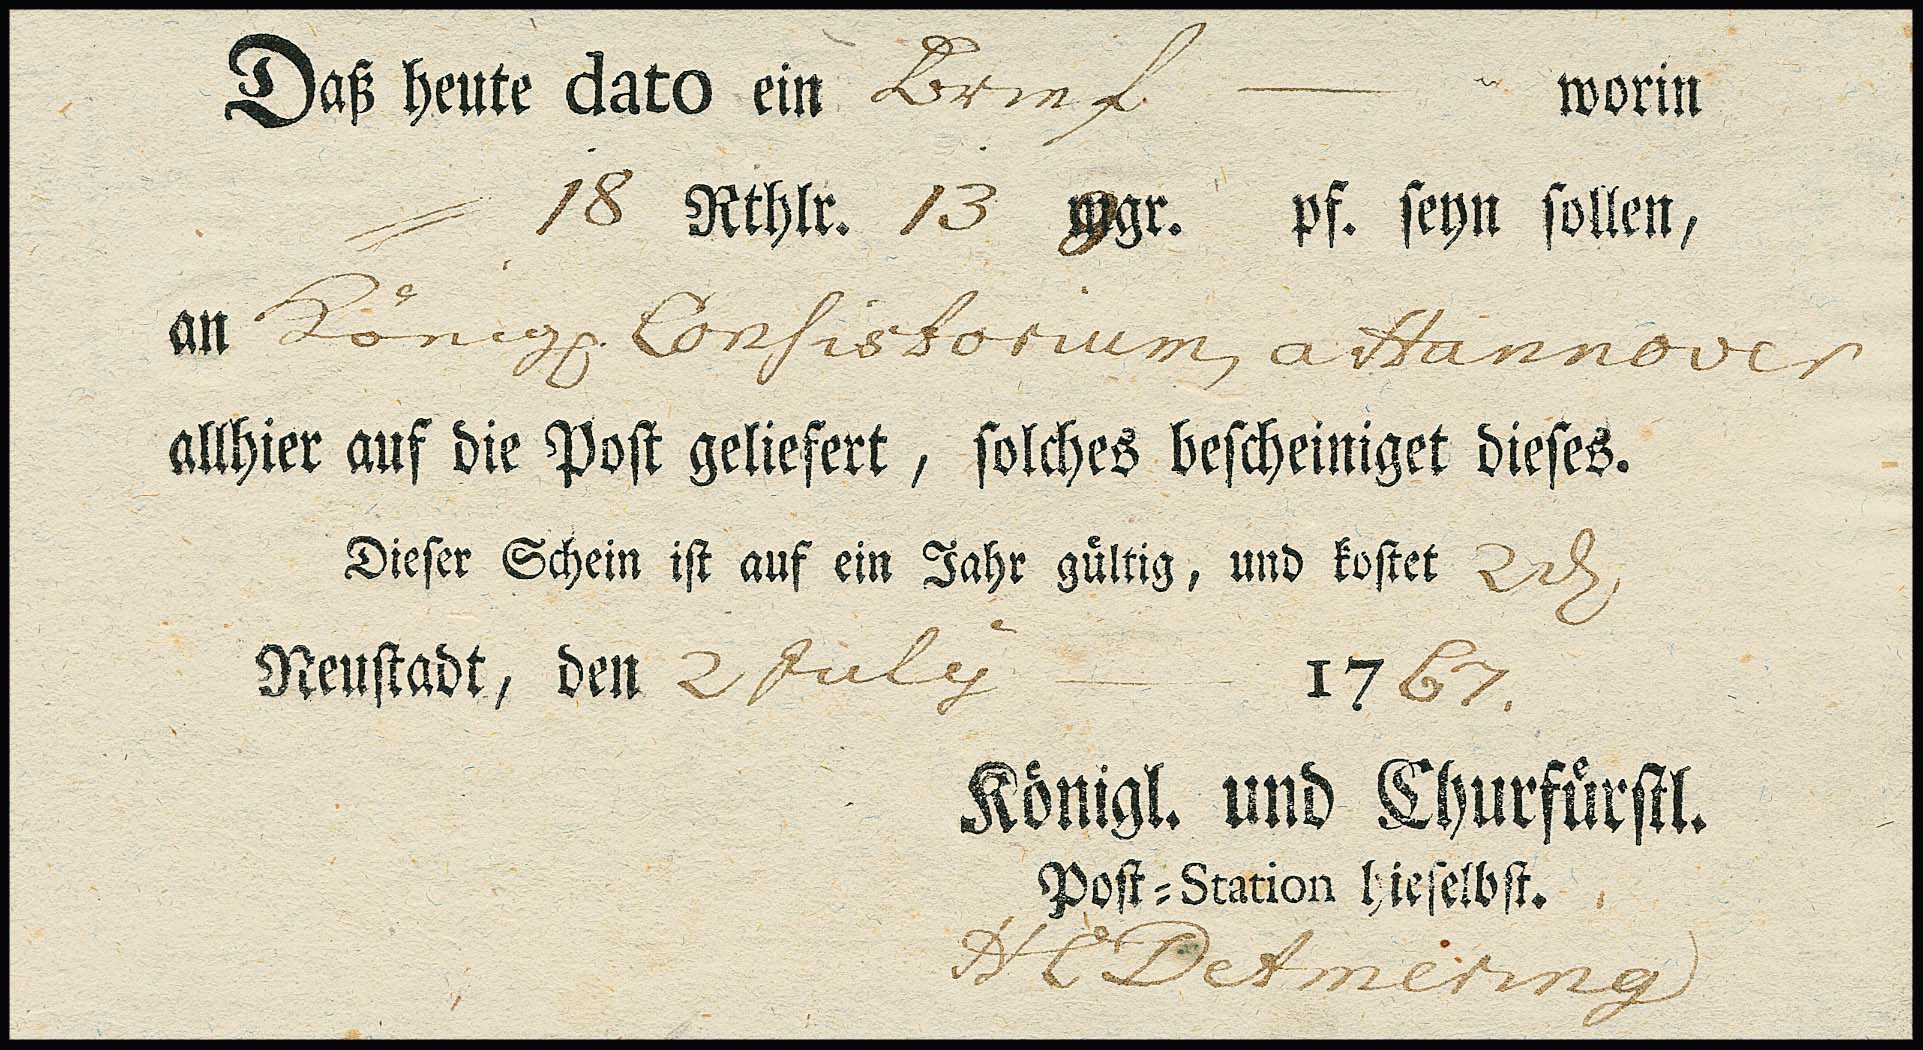 Daß heute dato ein Brief — worin
18 Rthlr. 13 ggr. pf. seyn sollen,
an Königl. Consistorium, a Hannover
allhier auf die Post geliefert, solches bescheiniget dieses.
Dieser Schein ist auf ein Jahr gültig, und kostet 2
Neustadt, den 2 July — 1767.
Königl. und Churfürstl.
Post-Station hieselbst.
Detmering